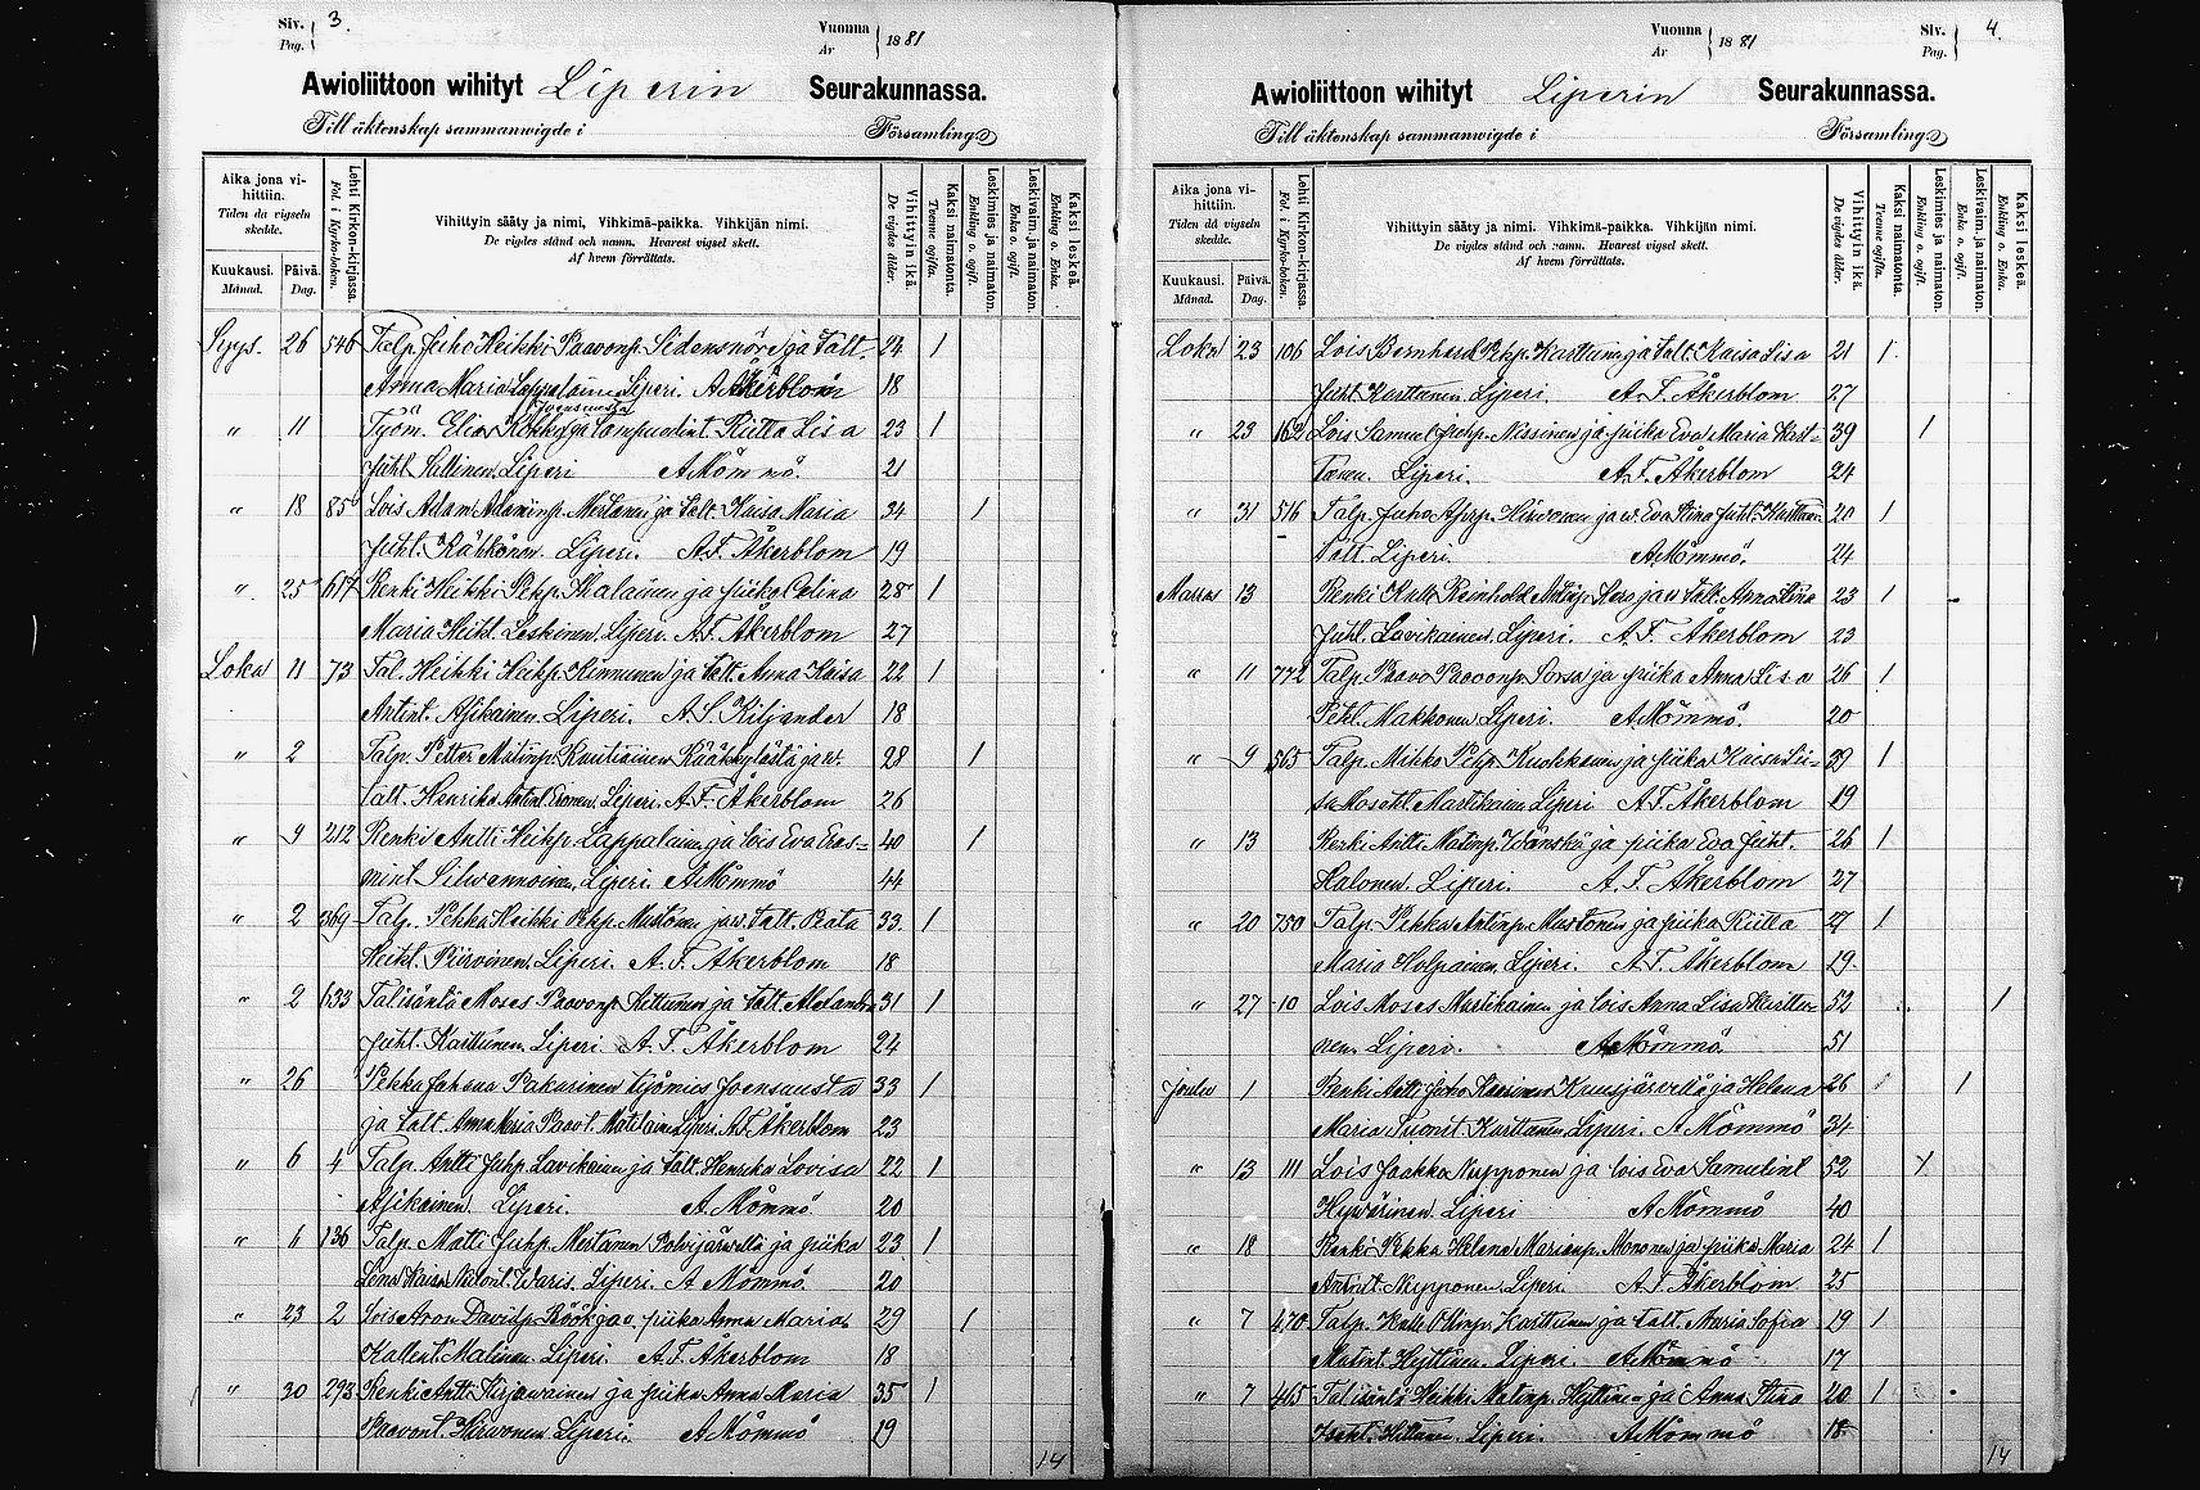 Siv. Pag. 3.
Vuonna År 1881
Awioliittoon wihityt Liperin Seurakunnassa.
Till äktenskap sammanwigde i Församling
Aika jona vihittiin. Tiden då vigseln skedde.
Kuukausi. Månad.
Päivä. Dag.
Lehti Kirkon-kirjassa. Fol. i Kyrko-boken.
Vihittyin sääty ja nimi, Vihkimä-paikka. Vihkijän nimi.
De vigdes stånd och namn. Hvarest vigsel skett.
Af hvem förrättats.
Vihittyin ikä. De vigdes ålder.
Kaksi naimatonta. Tvenne ogifta.
Leskimies ja naimaton. Enkling o. ogift.
Leskivaim. ja naimaton. Enka o. ogift.
Kaksi leskeä. Enkling o. Enka.
Syys. 26 546 Talp. Juho Heikki Paavonp. Sidensnöre ja talt. 24 1
Anna Maria Lappalainen Liperi. A Åkerblom 18
" 11 Työm. Elias Kokko ja lampuodint. Riitta Lisa 23 1
Juhl. Sallinen. Liperi A Mömmö. 21
" 18 85 Lois Adam Adaminp. Mertanen ja talt. Kaisa Maria 34 1
Juhl. Kähkönen. Liperi. A.F. Åkerblom 19
" 25 617 Renki Heikki Pekp. ja piika Celina 28 1
Maria Heikl. Leskinen. Liperi. A.F. Åkerblom 27
Loka 11 73 Tal. Heikki Heikp. Kinnunen ja talt. Anna Kaisa 22 1
Antint. Asikainen. Liperi. A.S. Kiljander 18
" 2 Talp. Petter Matinp. Rautiainen Rääkkylästä ja w. 28 1
talt. Henrika Antint. Eronen. Liperi. A.F. Åkerblom 26
" 9 212 Renki Antti Heikp. Lappalainen ja lois Eva Eras- 40 1
mint. Silwennoinen. Liperi. A Mömmö 44
" 2 369 Talp. Pekka Heikki Pekp. Mustonen ja w. talt. Beata 33. 1
Heikl. Piiroinen. Liperi. A.F. Åkerblom 18
" 2 633 Talisäntä Moses Paavonp. ja talt. 31 1
Juhl. Karttunen. Liperi. A.F. Åkerblom 24
" 26 Pekka Johana Pakarinen työmies Joensuusta 33 1
ja talt. Anna Maria Paavl. Matilainen Liperi. A.F. Åkerblom 23
" 6 4 Talp. Antti Juhp. Lavikainen ja talt. Henrika Lovisa 22 1
Asikainen. Liperi. A. Mömmö. 20
" 6 136 Talp. Matti Juhp. Mertanen Polvijärwellä ja piika 23 1
Lena Kaisa Waris. Liperi. A Mömmö. 20
" 23 2 Lois Aron Davidp. Röök ja piika Anna Maria 29 1
Kallent. Malinen. Liperi. A.F. Åkerblom 18
" 30 293 Renki Antti Kirjawainen ja piika Anna Maria 35 1
Paavont. Hirwonen. Liperi. A Mömmö 19
14
Vuonna År 1881
Siv. Pag. 4.
Awioliittoon wihityt Liperin Seurakunnassa.
Till äktenskap sammanwigde i Församling
Aika jona vihittiin. Tiden då vigseln skedde.
Kuukausi. Månad.
Päivä. Dag.
Lehti Kirkon-kirjassa. Fol. i Kyrko-boken.
Vihittyin sääty ja nimi. Vihkimä-paikka. Vihkijän nimi.
De vigdes stånd och namn. Hvarest vigsel skett.
Af hvem förrättats.
Vihittyin ikä. De vigdes ålder.
Kaksi naimatonta. Tvenne ogifta.
Leskimies ja naimaton. Enkling o. ogift.
Leskivaim. ja naimaton. Enka o. ogift.
Kaksi leskeä. Enkling o. Enka.
Loka 23 106 Lois Bernhard Pekp. Karttunen ja talt. Kaisa Lisa 21 1
Juhl. Karttunen. Liperi. A.F. Åkerblom 27
" 23 162 Lois Samuel Juhp. Nissinen ja piika Eva Maria 39 1
Liperi. A.F. Åkerblom 24
" 31 516 Talp. Juho Hirwonen ja w. Eva Stina Juhl. 20 1
talt. Liperi. A Mömmö. 24
Marras 13 Renki Kalle Reinhold ja w. talt. Anna Stina 23 1
Juhl. Lavikainen. Liperi. A.F. Åkerblom 23
" 11 772 Talp. Paavo Paavonp. Sorsa ja piika Anna Lisa 26 1
Pekl. Makkonen Liperi. A Mömmö. 20
" 9 565 Talp. Mikko Pekp. Kuokkanen ja piika Kaisa Lii- 39 1
sa Mosekl. Martikainen Liperi A.F. Åkerblom 19
" 13 Renki Antti Matinp. Wänskä ja piika Eva Juhl. 26 1
Halonen. Liperi. A.F. Åkerblom 27
" 20 750 Talp. Pekka Antinp. Mustonen ja piika Riitta 27 1
Maria Holpainen. Liperi. A.F. Åkerblom 19.
" 27 10 Lois Moses Martikainen ja lois Anna Lisa 52 1
nen. Liperi. A Mömmö. 51
Joulu 1 Renki Antti Juho Kuusjärvellä ja Helena 26 1
Maria Karttunen. Liperi. A Mömmö 34
" 13 111 Lois Jaakko Nupponen ja lois Eva Samulint 52 1
Hywärinen. Liperi A Mömmö 40
" 18 Renki Pekka Helena Marianp. Mononen ja piika Maria 24 1
Antint. Nupponen. Liperi. A.F. Åkerblom 25
" 7 470 Talp. Kalle Ollinp. Karttunen ja talt. Maria Sofia 19 1
Matint. Hyttinen. Liperi. A Mömmö 17
" 7 465 Talisäntä Heikki Matinp. Hyttinen ja Anna Stina 20 1
Liperi. A Mömmö 18
14